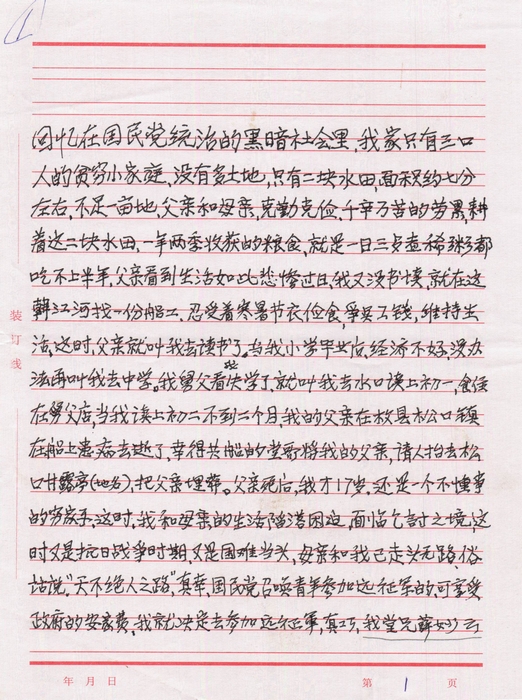 回忆在国民党统治的黑暗社会里,我家只有三口
人的贫穷小家庭,没有多土地,只有二块水田,面积约七分
左右,不足一亩地,父亲和母亲,克勤克俭,千辛万苦的劳累,耕
着这二块水田,一年两季收获的粮食,就是一日三歺查稀粥都
吃不上半年,父亲看到生活如此悲惨过日,我又没书读,就在这
韩江河找一份船工,忍受着寒暑节衣俭食,争买工钱,维持生
活,这时,父亲就叫我去读书了。当我小学毕业后,经济不好没办
法再叫我去中学。我舅父看失学了,就叫我去水口读上初一,食住
在舅父店,当我读上初二不到二个月,我的父亲在梅县松口镇
在船上患病去逝了,幸得共船的堂哥将我的父亲,请人抬去松
口甘露亭(地名),把父亲埋葬。父亲死后,我才17岁,还是一个不懂事
的穷孩子。这时,我和母亲的生活陷潜困迫,面临乞討之境,这
时又是抗日战争时期,又是国难当头,母亲和我已走头无路,俗
话说"天不绝人之路"真幸,国民党召唤青年参加远征军的,可享受
政府的安家费。我就决定去参加远征军,真巧,我堂兄薛妙云
装订线
年 月 日
第 1 页